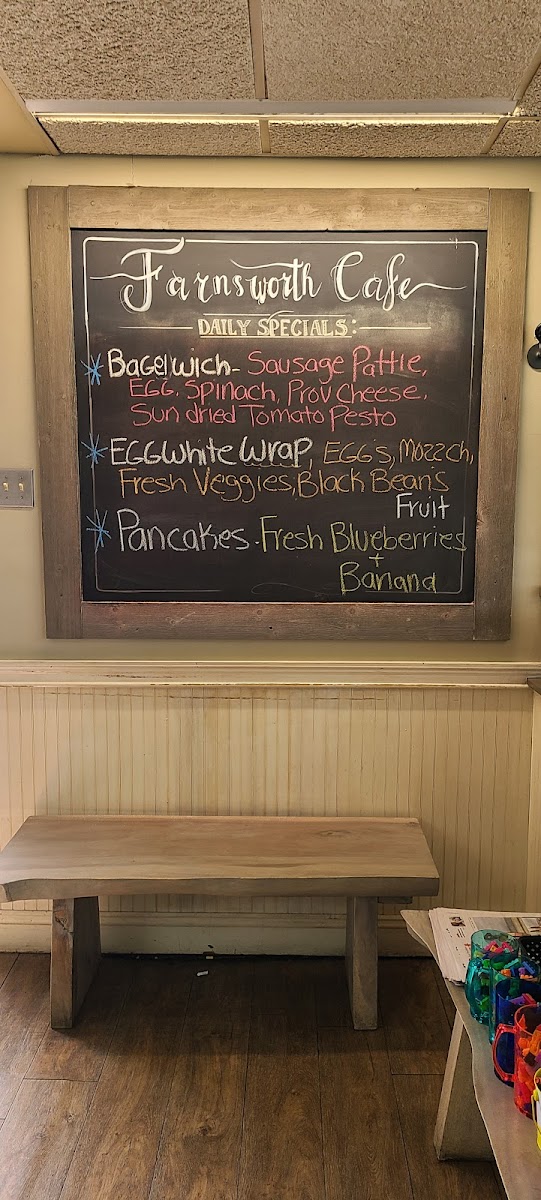 Farnsworth Cafe
DAILY SPECIALS:
Bagelwich- Sausage Pattie,
EGG, Spinach, Prov Cheese,
Sun dried Tomato Pesto
EGGWhite Wrap, EGG's, Mozz ch,
Fresh Veggies, Black Beans
Fruit
Pancakes - Fresh Blueberries
+
Banana